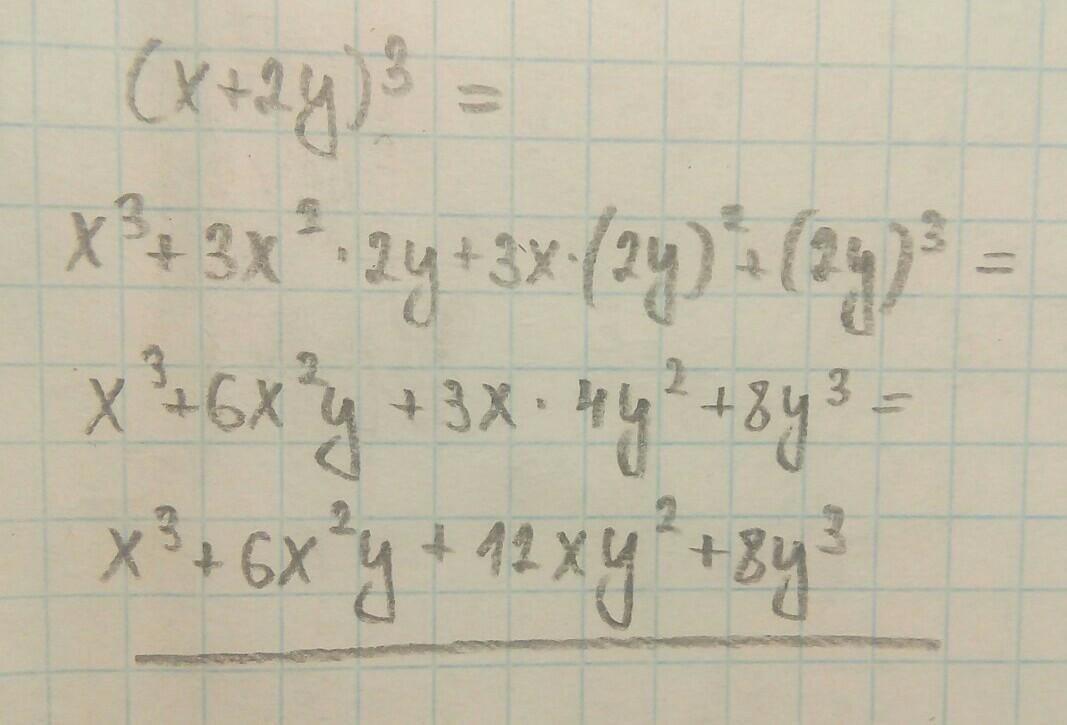 (x+2y)³ =
x³+3x²·2y+3x·(2y)²+(2y)³ =
x³+6x²y+3x·4y²+8y³=
x³+6x²y+12xy²+8y³